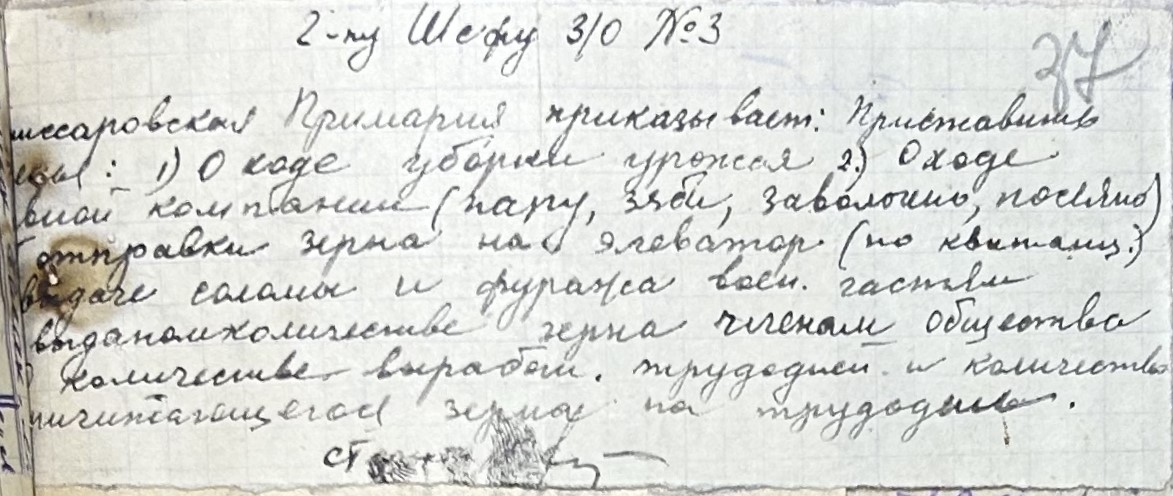 г-ну Шефу З/О №3
37
миссаровская Примария приказывает: Приставить
1) О ходе уборки урожая 2) О ходе
вной компании (пару, зяби, заволочно, посеяно)
отправки зерна на элеватор (по квитанц.)
выдаче соломы и фуража воен. частям
выданом количестве зерна членам общества
количестве выработ. трудодней и количество
причитающегося зерна на трудодень.